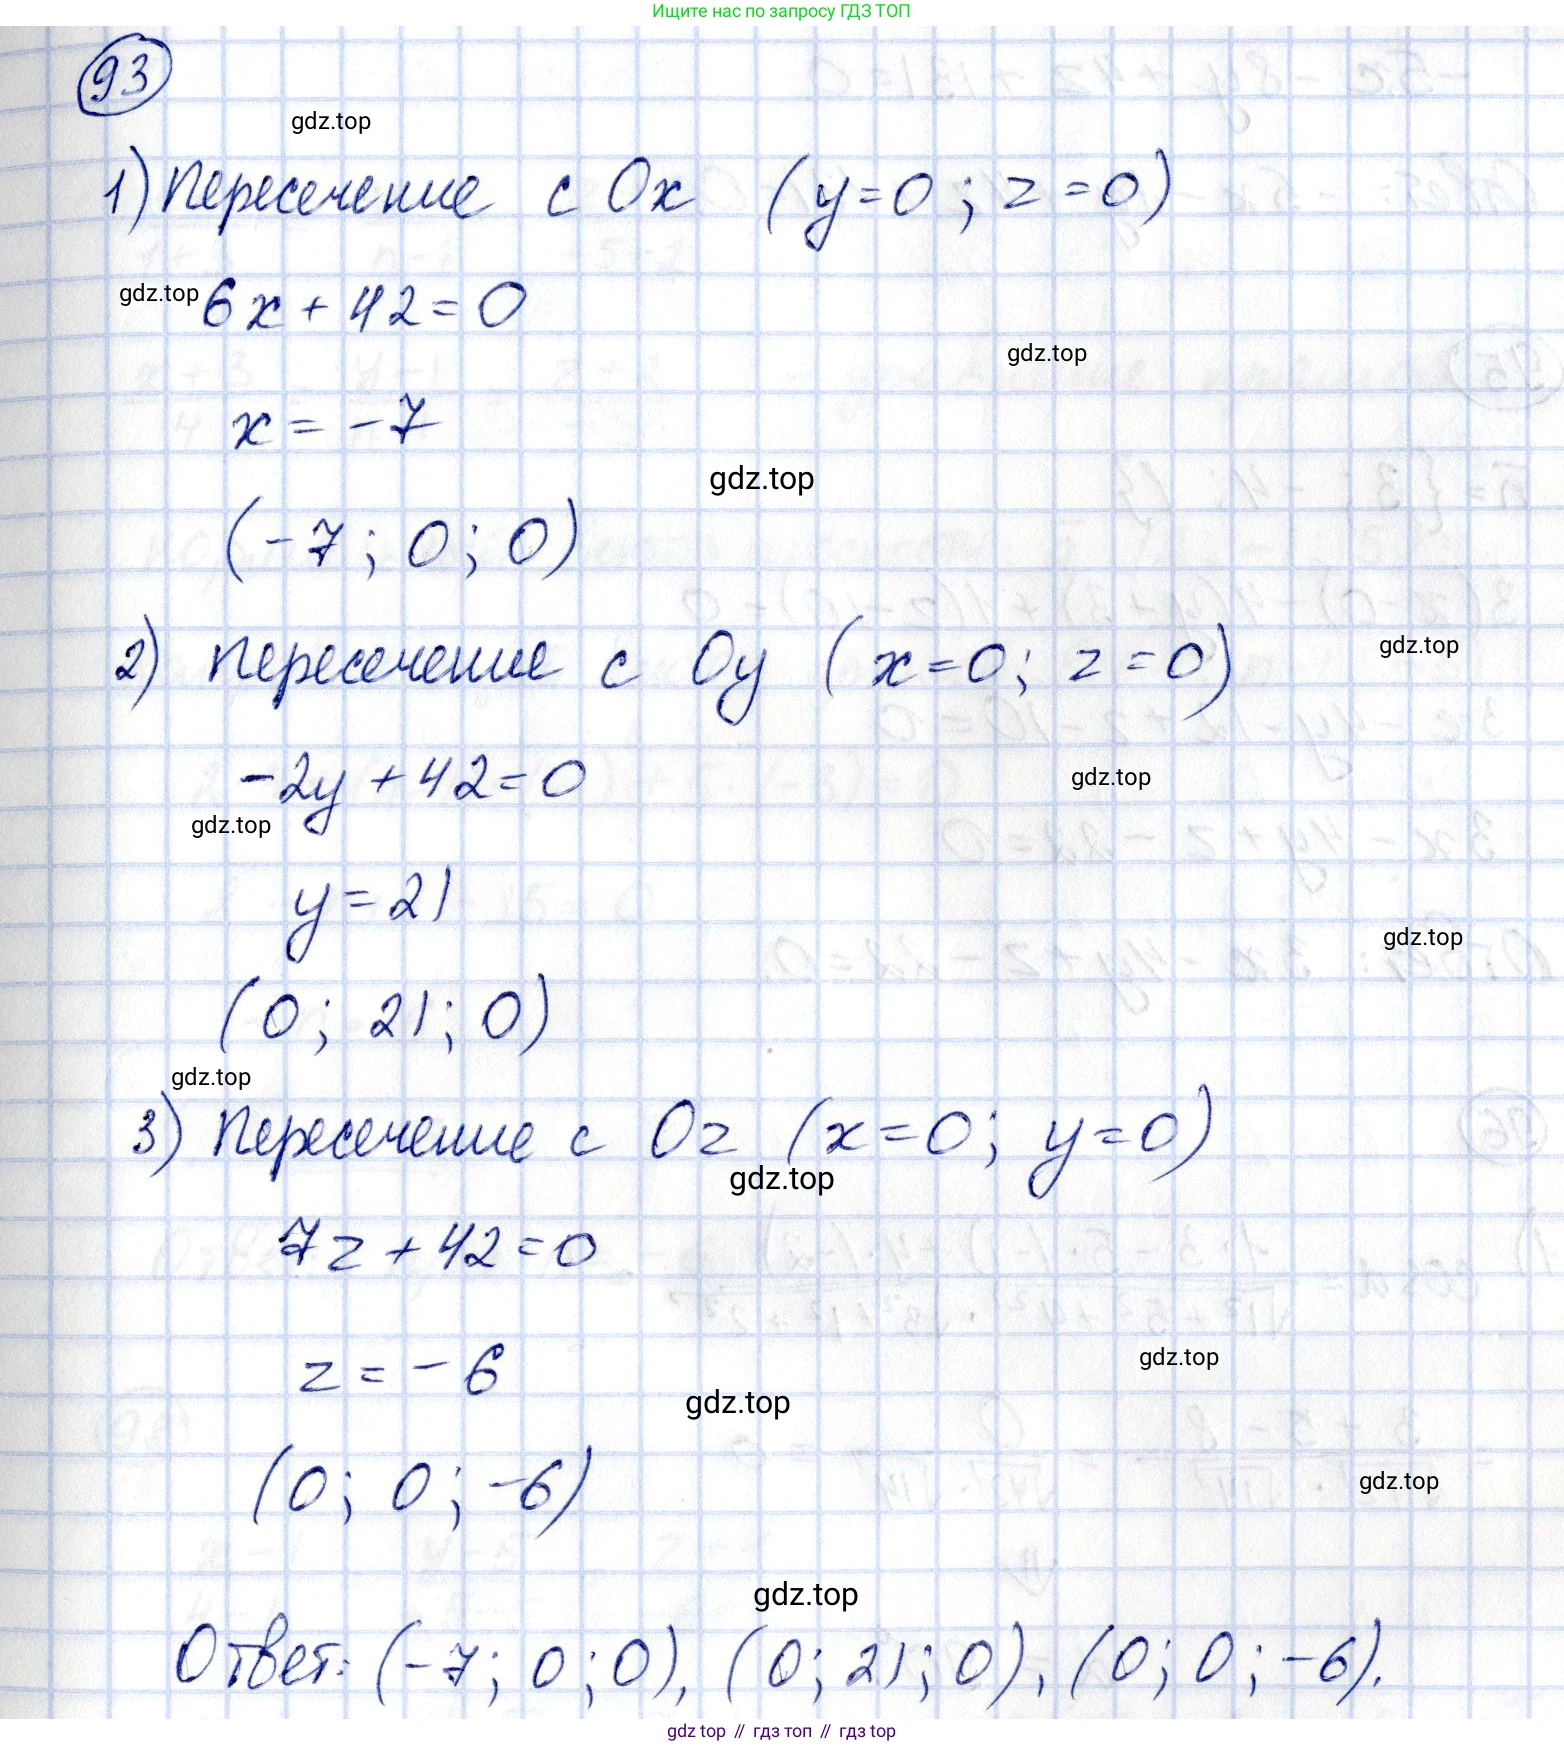 Ищите нас по запросу ГДЗ ТОП
93
gdz.top
1) Пересечение с Ox (y=0; z=0)
gdz.top
6x + 42 = 0
gdz.top
x = -7
gdz.top
(-7; 0; 0)
2) Пересечение с Oy (x=0; z=0)
gdz.top
-2y + 42 = 0
gdz.top
gdz.top
y = 21
gdz.top
(0; 21; 0)
gdz.top
3) Пересечение с Oz (x=0; y=0)
gdz.top
7z + 42 = 0
gdz.top
z = -6
gdz.top
(0; 0; -6)
gdz.top
gdz.top
Ответ: (-7; 0; 0), (0; 21; 0), (0; 0; -6).
gdz top // гдз топ // гдз top